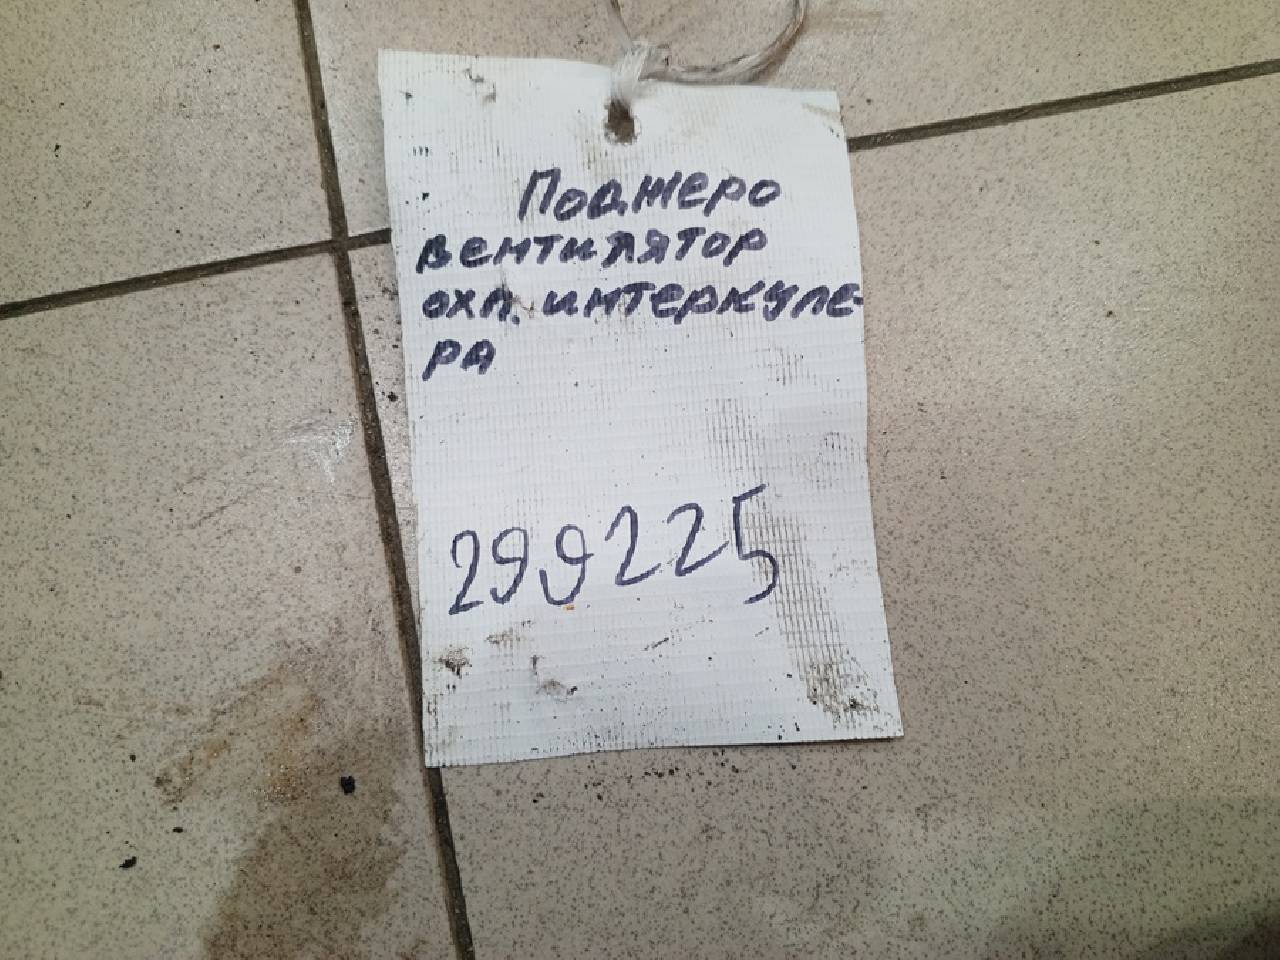 Поджеро
вентилятор
охл. интеркуле-
ра
299225